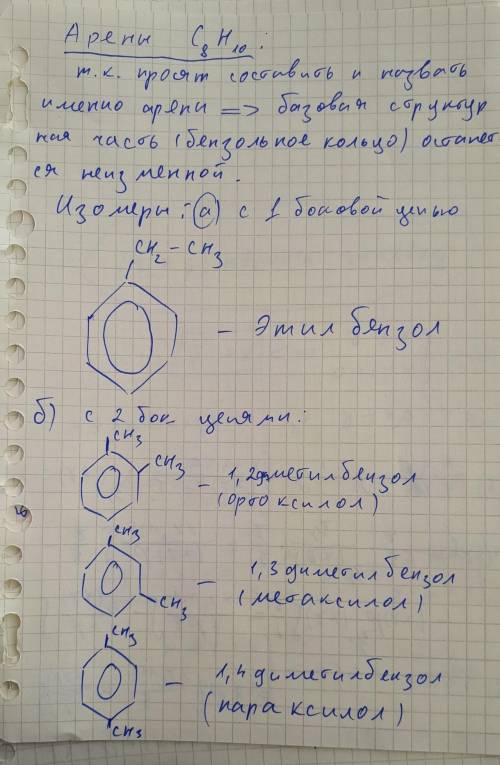 Арены C8H10:
т.к. просят составить и назвать
именно арены => базовая структур
ная часть (бензольное кольцо) останет
ся неизменной.
Изомеры: а) с 1 боковой цепью
CH2-CH3
- Этилбензол
б) с 2 бок цепями:
CH3
CH3
- 1,2диметилбензол
(ортоксилол)
CH3
CH3
- 1,3 диметилбензол
(метаксилол)
CH3
CH3
- 1,4 диметилбензол
(параксилол)